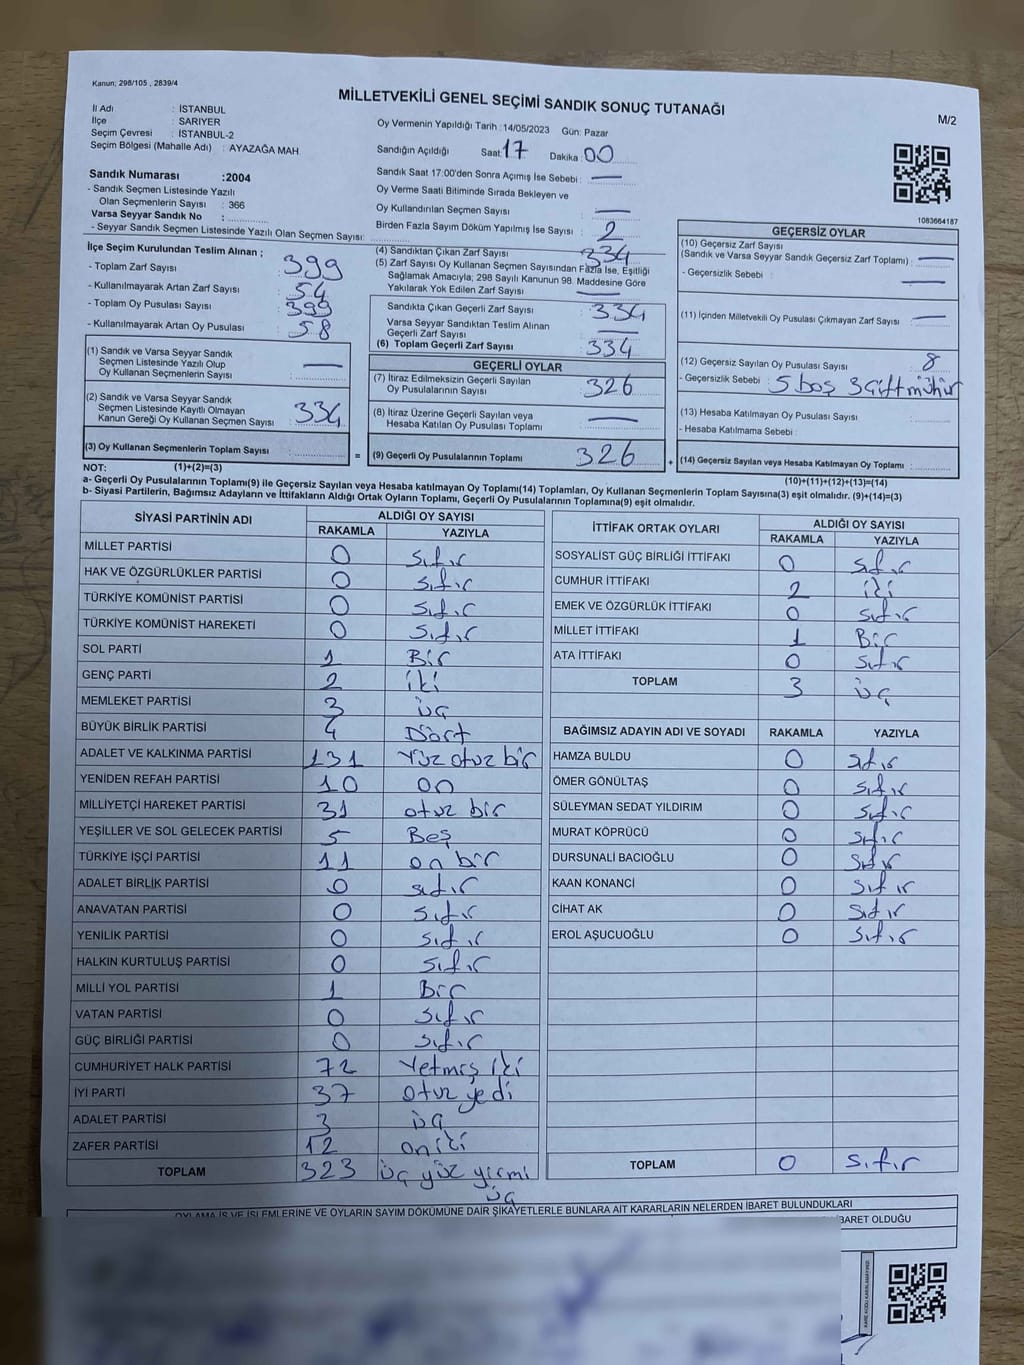 Kanun; 298/105 , 2839/4
MİLLETVEKİLİ GENEL SEÇİMİ SANDIK SONUÇ TUTANAĞI
M/2
İl Adı : İSTANBUL
İlçe : SARIYER
Seçim Çevresi : İSTANBUL-2
Seçim Bölgesi (Mahalle Adı) : AYAZAĞA MAH.
Oy Vermenin Yapıldığı Tarih : 14/05/2023 Gün: Pazar
Sandığın Açıldığı Saat: 17 Dakika: 00
Sandık Saat 17:00'den Sonra Açımış İse Sebebi : —
Oy Verme Saati Bitiminde Sırada Bekleyen ve
Oy Kullandırılan Seçmen Sayısı —
Birden Fazla Sayım Döküm Yapılmış İse Sayısı : 2
Sandık Numarası :2004
- Sandık Seçmen Listesinde Yazılı
Olan Seçmenlerin Sayısı : 366
Varsa Seyyar Sandık No :
- Seyyar Sandık Seçmen Listesinde Yazılı Olan Seçmen Sayısı:
1083664187
İlçe Seçim Kurulundan Teslim Alınan ;
- Toplam Zarf Sayısı : 399
- Kullanılmayarak Artan Zarf Sayısı : 54
- Toplam Oy Pusulası Sayısı : 399
- Kullanılmayarak Artan Oy Pusulası : 58
(1) Sandık ve Varsa Seyyar Sandık
Seçmen Listesinde Yazılı Olup
Oy Kullanan Seçmenlerin Sayısı : —
(2) Sandık ve Varsa Seyyar Sandık
Seçmen Listesinde Kayıtlı Olmayan
Kanun Gereği Oy Kullanan Seçmen Sayısı : 334
(3) Oy Kullanan Seçmenlerin Toplam Sayısı :
(4) Sandıktan Çıkan Zarf Sayısı : 334
(5) Zarf Sayısı Oy Kullanan Seçmen Sayısından Fazla İse, Eşitliği
Sağlamak Amacıyla; 298 Sayılı Kanunun 98. Maddesine Göre
Yakılarak Yok Edilen Zarf Sayısı —
Sandıkta Çıkan Geçerli Zarf Sayısı : 334
Varsa Seyyar Sandıktan Teslim Alınan
Geçerli Zarf Sayısı —
(6) Toplam Geçerli Zarf Sayısı : 334
GEÇERLİ OYLAR
(7) İtiraz Edilmeksizin Geçerli Sayılan
Oy Pusulalarının Sayısı : 326
(8) İtiraz Üzerine Geçerli Sayılan veya
Hesaba Katılan Oy Pusulası Toplamı —
= (9) Geçerli Oy Pusulalarının Toplamı 326 +
GEÇERSİZ OYLAR
(10) Geçersiz Zarf Sayısı
(Sandık ve Varsa Seyyar Sandık Geçersiz Zarf Toplamı) : —
- Geçersizlik Sebebi : —
(11) İçinden Milletvekili Oy Pusulası Çıkmayan Zarf Sayısı : —
(12) Geçersiz Sayılan Oy Pusulası Sayısı : 8
- Geçersizlik Sebebi : 5 boş 3 çift mühür
(13) Hesaba Katılmayan Oy Pusulası Sayısı :
- Hesaba Katılmama Sebebi :
(14) Geçersiz Sayılan veya Hesaba Katılmayan Oy Toplamı :
NOT: (1)+(2)=(3)
(10)+(11)+(12)+(13)=(14)
a- Geçerli Oy Pusulalarının Toplamı(9) ile Geçersiz Sayılan veya Hesaba katılmayan Oy Toplamı(14) Toplamları, Oy Kullanan Seçmenlerin Toplam Sayısına(3) eşit olmalıdır. (9)+(14)=(3)
b- Siyasi Partilerin, Bağımsız Adayların ve İttifakların Aldığı Ortak Oyların Toplamı, Geçerli Oy Pusulalarının Toplamına(9) eşit olmalıdır.
SİYASİ PARTİNİN ADI ALDIĞI OY SAYISI
RAKAMLA YAZIYLA
MİLLET PARTİSİ 0 Sıfır
HAK VE ÖZGÜRLÜKLER PARTİSİ 0 Sıfır
TÜRKİYE KOMÜNİST PARTİSİ 0 Sıfır
TÜRKİYE KOMÜNİST HAREKETİ 0 Sıfır
SOL PARTİ 1 Bir
GENÇ PARTİ 2 iki
MEMLEKET PARTİSİ 3 üç
BÜYÜK BİRLİK PARTİSİ 4 Dört
ADALET VE KALKINMA PARTİSİ 131 Yüz otuz bir
YENİDEN REFAH PARTİSİ 10 on
MİLLİYETÇİ HAREKET PARTİSİ 31 otuz bir
YEŞİLLER VE SOL GELECEK PARTİSİ 5 Beş
TÜRKİYE İŞÇİ PARTİSİ 11 on bir
ADALET BİRLİK PARTİSİ 0 sıfır
ANAVATAN PARTİSİ 0 Sıfır
YENİLİK PARTİSİ 0 Sıfır
HALKIN KURTULUŞ PARTİSİ 0 Sıfır
MİLLİ YOL PARTİSİ 1 Bir
VATAN PARTİSİ 0 Sıfır
GÜÇ BİRLİĞİ PARTİSİ 0 sıfır
CUMHURİYET HALK PARTİSİ 72 Yetmiş iki
İYİ PARTİ 37 Otuz yedi
ADALET PARTİSİ 3 üç
ZAFER PARTİSİ 12 on iki
TOPLAM 323 üç yüz yirmi
üç
İTTİFAK ORTAK OYLARI ALDIĞI OY SAYISI
RAKAMLA YAZIYLA
SOSYALİST GÜÇ BİRLİĞİ İTTİFAKI 0 Sıfır
CUMHUR İTTİFAKI 2 iki
EMEK VE ÖZGÜRLÜK İTTİFAKI 0 sıfır
MİLLET İTTİFAKI 1 Bir
ATA İTTİFAKI 0 Sıfır
TOPLAM 3 üç
BAĞIMSIZ ADAYIN ADI VE SOYADI RAKAMLA YAZIYLA
HAMZA BULDU 0 sıfır
ÖMER GÖNÜLTAŞ 0 Sıfır
SÜLEYMAN SEDAT YILDIRIM 0 Sıfır
MURAT KÖPRÜCÜ 0 Sıfır
DURSUNALİ BACIOĞLU 0 Sıfır
KAAN KONANCİ 0 Sıfır
CİHAT AK 0 Sıfır
EROL AŞUCUOĞLU 0 Sıfır
TOPLAM 0 Sıfır
OYLAMA İŞ VE İŞLEMLERİNE VE OYLARIN SAYIM DÖKÜMÜNE DAİR ŞİKAYETLERLE BUNLARA AİT KARARLARIN NELERDEN İBARET BULUNDUKLARI
İBARET OLDUĞU